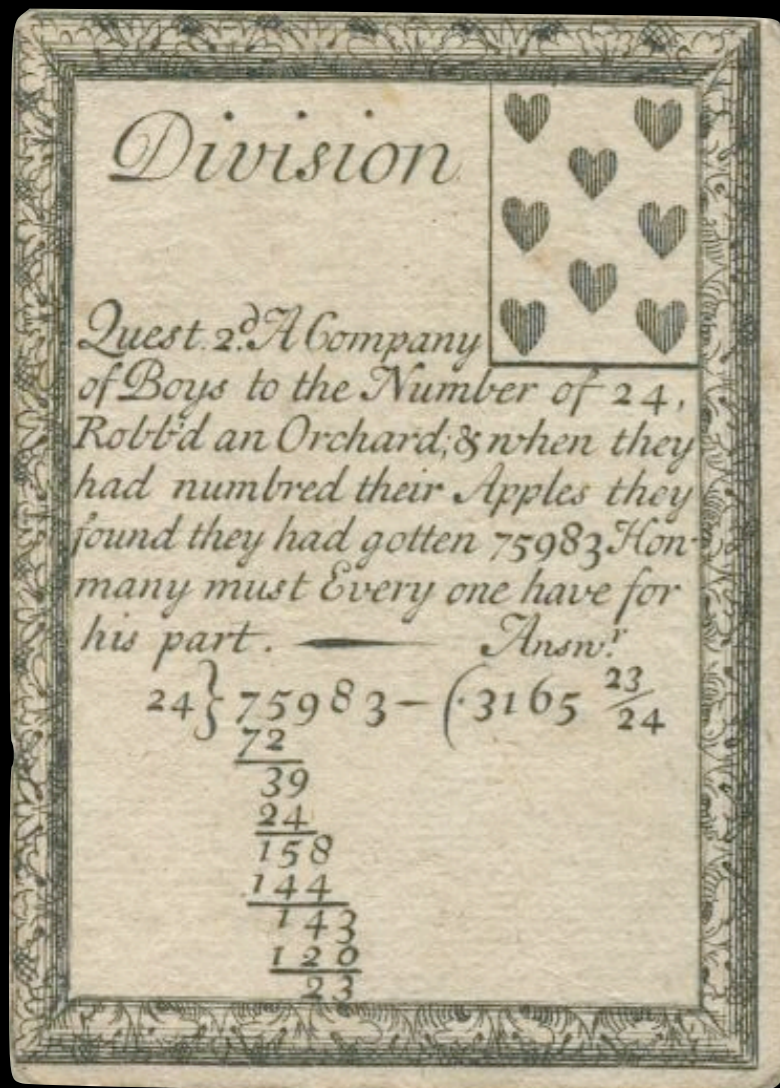 Division
Quest. 2.d A Company
of Boys to the Number of 24,
Robb'd an Orchard; & when they
had numbred their Apples they
found they had gotten 75983 How
many must Every one have for
his part. — Answ.r
24} 75983 – (.3165 23/24
72
39
24
158
144
143
120
23